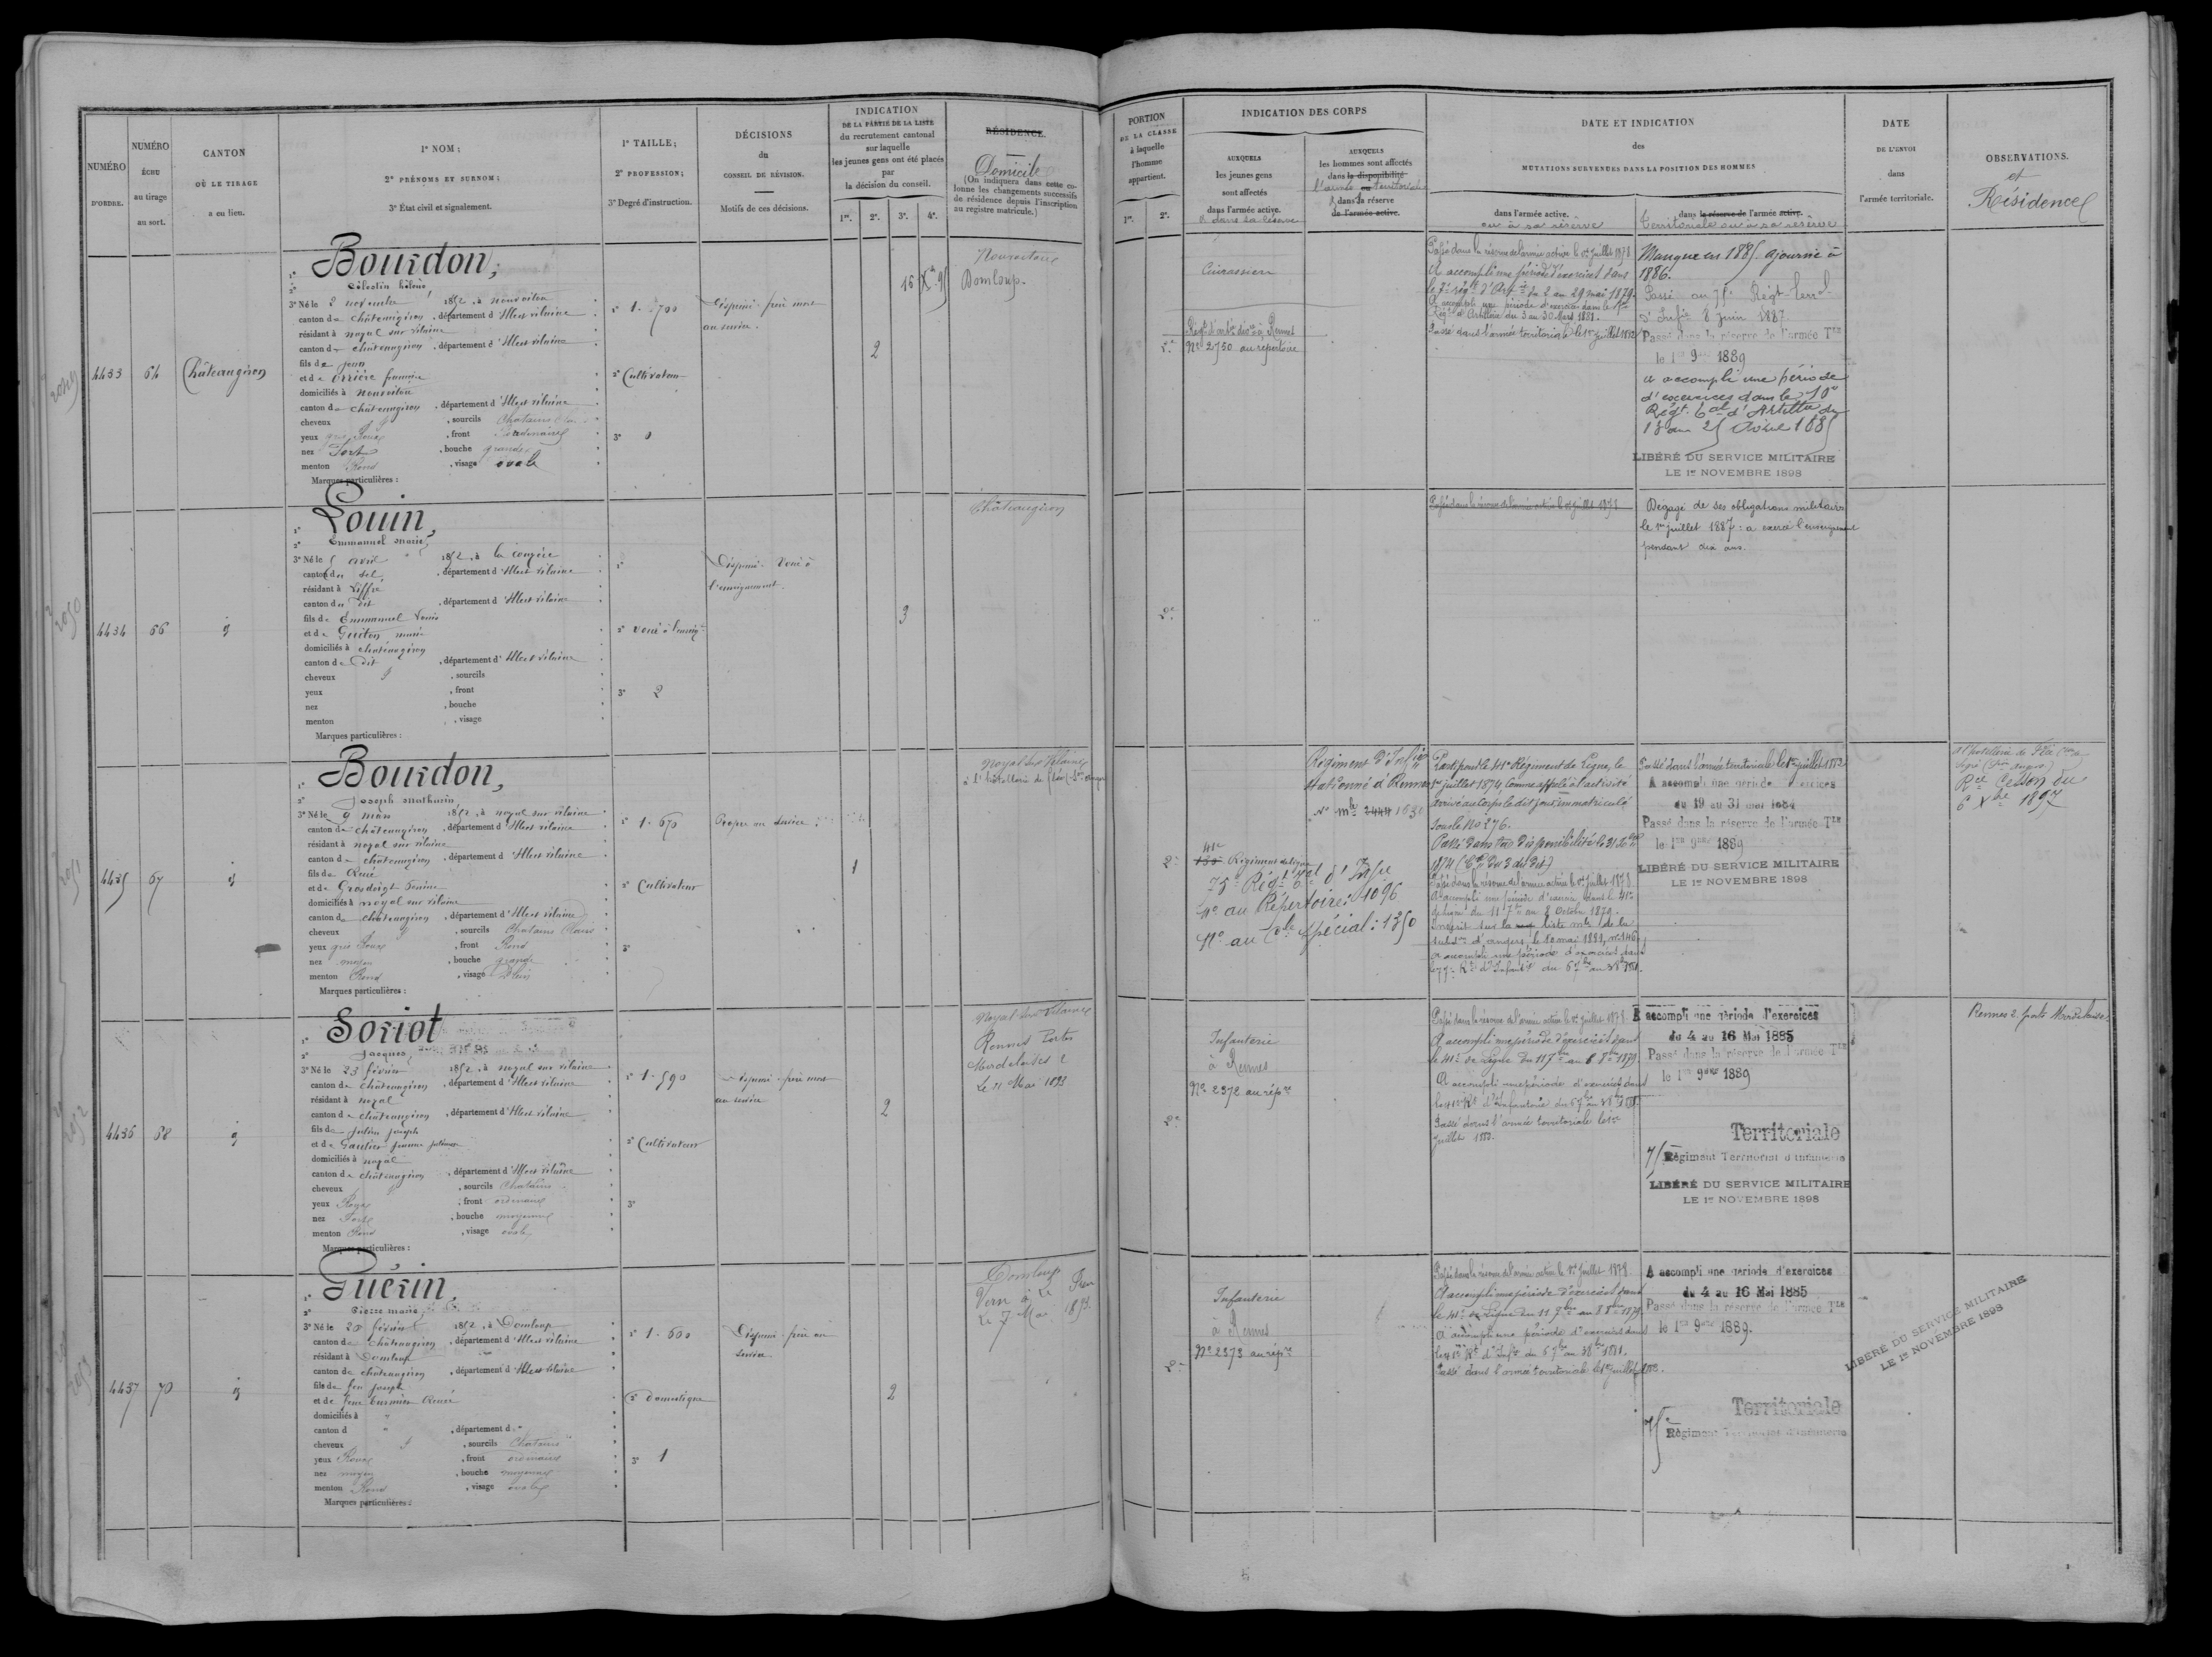 NUMÉRO
D'ORDRE.
NUMÉRO
ÉCHU
au tirage
au sort.
CANTON
OÙ LE TIRAGE
a eu lieu.
1º NOM;
2º PRÉNOMS ET SURNOM;
3º État civil et signalement.
1º TAILLE;
2º PROFESSION;
3º Degré d'instruction.
DÉCISIONS
du
CONSEIL DE RÉVISION.
Motifs de ces décisions.
INDICATION
DE LA PARTIE DE LA LISTE
du recrutement cantonal
sur laquelle
les jeunes gens ont été placés
par
la décision du conseil.
1re. 2e. 3e. 4e.
RÉSIDENCE.
Domicile
(On indiquera dans cette co-
lonne les changements successifs
de résidence depuis l'inscription
au registre matricule.)
4433
64
Châteaugiron
1º Bourdon,
2º Célestin
3º Né le 2 novembre 1852, à Nouvoitou
canton de Châteaugiron, département d'Ille et Vilaine
résidant à Noyal sur Vilaine
canton de Châteaugiron, département d'Ille et Vilaine
fils de Jean
et de
domiciliés à Nouvoitou
canton de Châteaugiron, département d'Ille et Vilaine
cheveux, sourcils Chatains
yeux gris Roux, front ordinaire
nez Fort, bouche grande
menton Rond, visage ovale
Marques particulières :
1º 1.700
2º Cultivateur
3º
Dispensé frère mort
au service.
2
Nouvoitou
Domloup.
4434
66
id
1º Louin,
2º Emmanuel Marie
3º Né le 5 avril 1852, à la Couyère
canton du Sel, département d'Ille et Vilaine
résidant à Liffré
canton du dit, département d'Ille et Vilaine
fils de Emmanuel Louis
et de Guiton Marie
domiciliés à Châteaugiron
canton de dit, département d'Ille et Vilaine
cheveux, sourcils
yeux, front
nez, bouche
menton, visage
Marques particulières :
1º
2º voué à l'enseigt
3º 2
Dispensé. Voué à
l'enseignement.
3
Châteaugiron
4435
67
id
1º Bourdon,
2º Joseph Mathurin
3º Né le 9 mars 1852, à Noyal sur Vilaine
canton de Châteaugiron, département d'Ille et Vilaine
résidant à Noyal sur Vilaine
canton de Châteaugiron, département d'Ille et Vilaine
fils de René
et de Grosdoigt
domiciliés à Noyal sur Vilaine
canton de Châteaugiron, département d'Ille et Vilaine
cheveux, sourcils Chatains clairs
yeux gris Roux, front Rond
nez moyen, bouche grande
menton Rond, visage Plein
Marques particulières :
1º 1.670
2º Cultivateur
3º
Propre au service.
1
Noyal sur Vilaine
4436
68
id
1º Soriot
2º Jacques
3º Né le 23 février 1852, à Noyal sur Vilaine
canton de Châteaugiron, département d'Ille et Vilaine
résidant à Noyal
canton de Châteaugiron, département d'Ille et Vilaine
fils de Julien Joseph
et de Gautier Jeanne
domiciliés à Noyal
canton de Châteaugiron, département d'Ille et Vilaine
cheveux, sourcils Chatains
yeux, front ordinaire
nez Fort, bouche moyenne
menton Rond, visage ovale
Marques particulières :
1º 1.590
2º Cultivateur
3º
Dispensé frère mort
au service
2
Noyal sur Vilaine
Rennes Porte
Mordelaise 2
Le 11 Mai 1893
4437
70
id
1º Guérin,
2º Pierre Marie
3º Né le 20 février 1852, à Domloup
canton de Châteaugiron, département d'Ille et Vilaine
résidant à Domloup
canton de Châteaugiron, département d'Ille et Vilaine
fils de feu Joseph
et de feue Renée
domiciliés à "
canton d ", département d "
cheveux, sourcils Chatains
yeux Roux, front ordinaire
nez moyen, bouche moyenne
menton Rond, visage ovale
Marques particulières :
1º 1.600
2º Domestique
3º 1
Dispensé frère au
service
2
Domloup
PORTION
DE LA CLASSE
à laquelle
l'homme
appartient.
1re. 2e.
INDICATION DES CORPS
AUXQUELS
les jeunes gens
sont affectés
dans l'armée active.
et dans sa réserve
AUXQUELS
les hommes sont affectés
dans la disponibilité
l'armée territoriale
et dans la réserve
de l'armée active.
DATE ET INDICATION
des
MUTATIONS SURVENUES DANS LA POSITION DES HOMMES
dans l'armée active.
ou à sa réserve
dans la réserve de l'armée active.
Territoriale ou à sa réserve
DATE
DE L'ENVOI
dans
l'armée territoriale.
OBSERVATIONS.
et
Résidence
2e
Cuirassiers
Nº 2750 au répertoire
Passé dans la réserve de l'armée active le 1er Juillet 1878
A accompli une période d'exercices dans
le 7e régt d'Artie du 2 au 29 mai 1879.
A accompli une période d'exercices dans le
Régt d'Artillerie du 3 au 30 Mars 1881.
Passé dans l'armée territoriale le 1er Juillet 1882
Manque en 1885 ajourné à
1886.
Passé au 75e Régt Terral
d'Infie 8 Juin 1887
Passé dans la réserve de l'armée Tle
le 1er 9bre 1889
a accompli une période
d'exercices dans le 10e
Régt tal d'Artillie du
13 au 25 Avril 1885
LIBÉRÉ DU SERVICE MILITAIRE
LE 1er NOVEMBRE 1898
2e
Passé dans la réserve de l'armée active le 1er Juillet 1878
Dégagé de ses obligations militaires
le 1er juillet 1887 : a exercé l'enseignement
pendant dix ans.
2e
41e Régiment de ligne
75e Régt tal d'Infie
Nº au Répertoire : 1096
Nº au Cle spécial : 1350
Régiment d'Infie
stationné à Rennes
Nº mle 2444 1630
Parti pour le 41e Régiment de Ligne, le
1er juillet 1874 comme appelé à l'activité
arrivé au Corps le dit jour immatriculé
sous le Nº 276.
Passé dans la disponibilité le 31 Xbre
1874
Passé dans la réserve de l'armée active le 1er Juillet 1878
A accompli une période d'exercices dans le 41e
de ligne du 11 7bre au 8 Octobre 1879.
Inscrit sur la liste mle de la
subdon d'Angers le 10 mai 1881, nº 146
a accompli une période d'exercices dans
Passé dans l'armée territoriale le 1er juillet 1882
A accompli une période d'exercices
du 19 au 31 mai 1884
Passé dans la réserve de l'armée Tle
le 1er 9bre 1889
LIBÉRÉ DU SERVICE MILITAIRE
LE 1er NOVEMBRE 1898
Rce Cesson du
6 Xbre 1897
2e
Infanterie
à Rennes
Nº 2372 au répre
Passé dans la réserve de l'armée active le 1er Juillet 1878
A accompli une période d'exercices dans
le 41e de Ligne du 11 7bre au 8 8bre 1879.
A accompli une période d'exercices dans
Passé dans l'armée territoriale le 1er
Juillet 1882.
A accompli une période d'exercices
du 4 au 16 Mai 1885
Passé dans la réserve de l'armée Tle
le 1er 9bre 1889
Territoriale
75 Régiment Territorial d'Infanterie
LIBÉRÉ DU SERVICE MILITAIRE
LE 1er NOVEMBRE 1898
Rennes 2 porte Mordelaise
2e
Infanterie
à Rennes
Nº 2373 au répre
Passé dans la réserve de l'armée active le 1er Juillet 1878
A accompli une période d'exercices dans
le 41e de Ligne du 11 7bre au 8 8bre 1879
A accompli une période d'exercices dans
Passé dans l'armée territoriale le 1er Juillet 1882.
A accompli une période d'exercices
du 4 au 16 Mai 1885
Passé dans la réserve de l'armée Tle
le 1er 9bre 1889.
Territoriale
75e Régiment Territorial d'Infanterie
LIBÉRÉ DU SERVICE MILITAIRE
LE 1er NOVEMBRE 1898